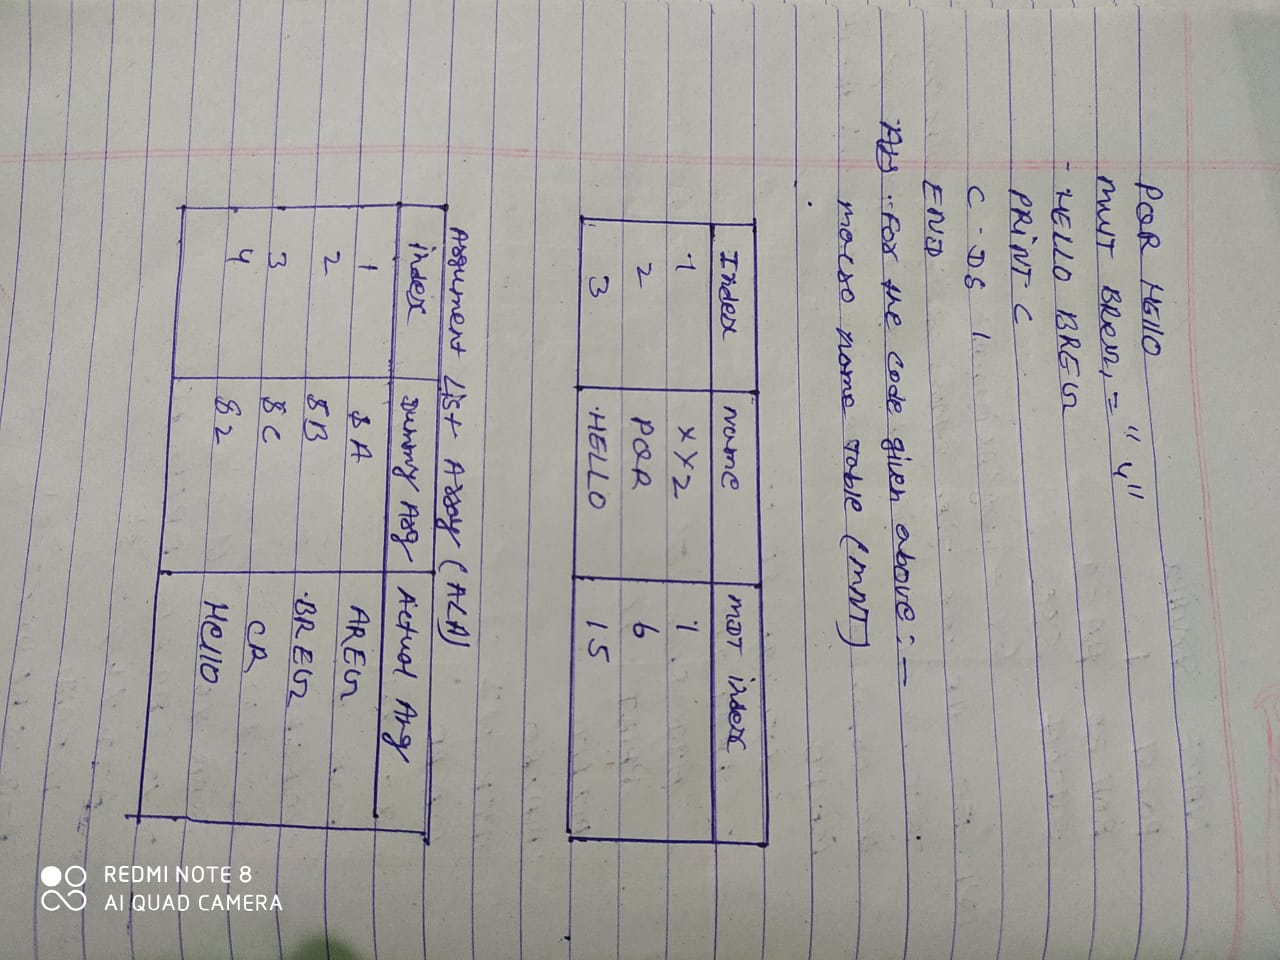 PQR HEllO
MULT BREG, = " 4"
HELLO BREG
PRINT C
C DS 1
END
Ans :- For the code given above : —
macro name Table (MNT)
Index Name MDT index
1 XYZ 1
2 PQR 6
3 HELLO 15
Argument List Array (ALA)
index Dummy Arg Actual Arg
1 &A AREG
2 &B BREG
3 &C CR
4 &Z HellO
REDMI NOTE 8
AI QUAD CAMERA